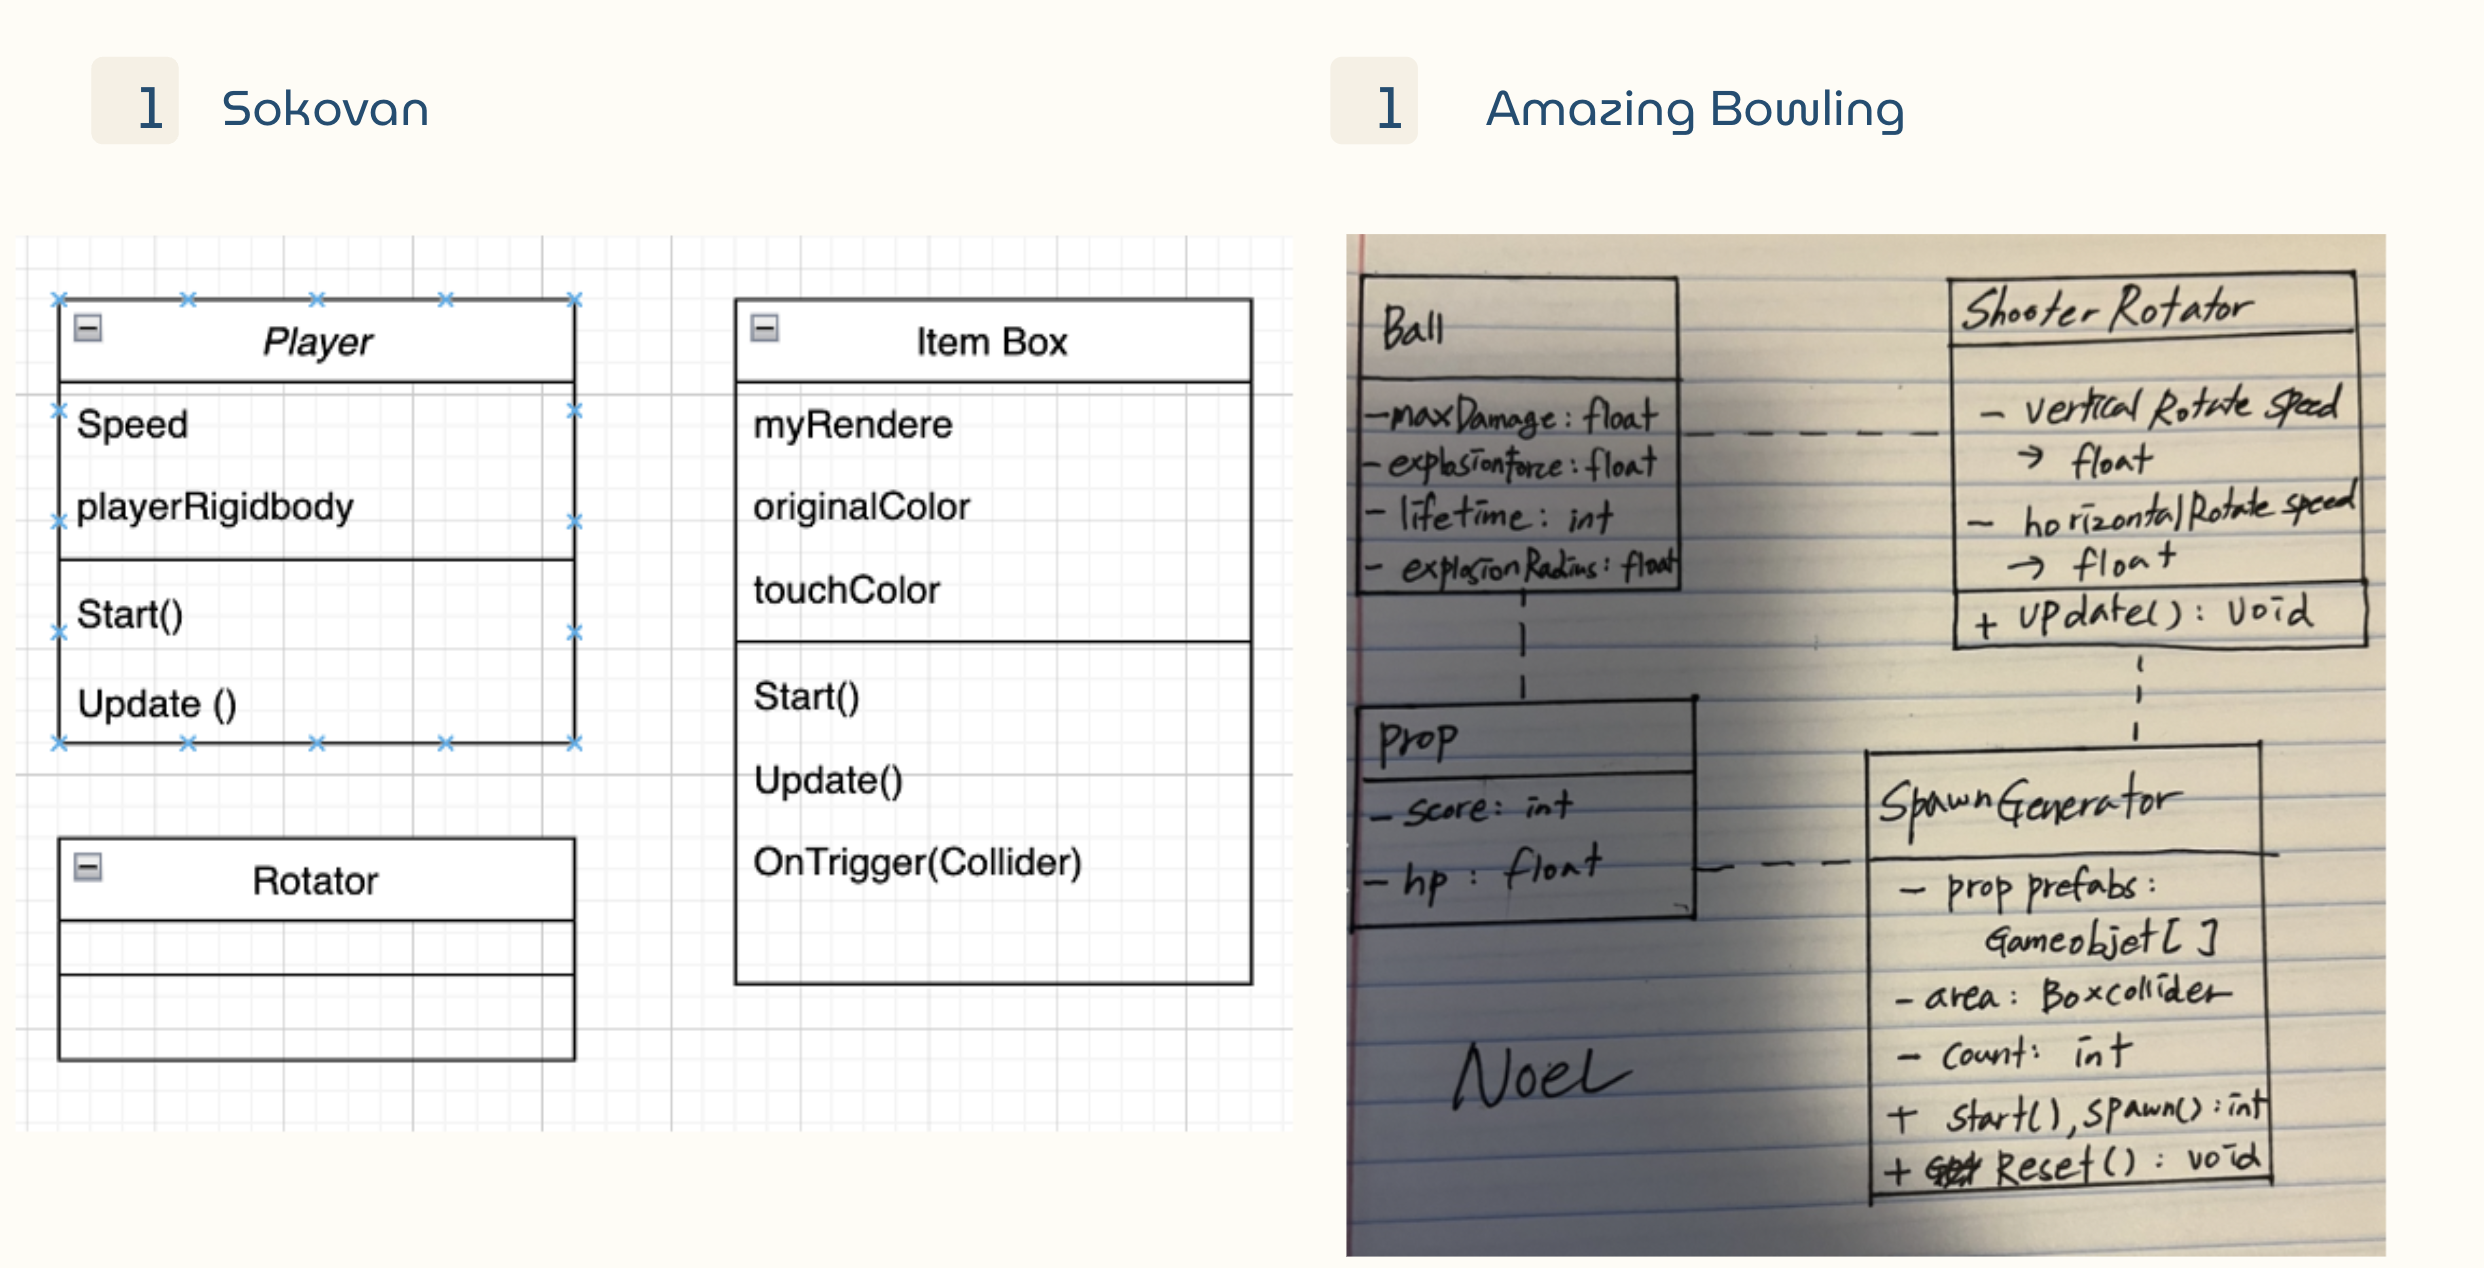 1 Sokovan
Player
Speed
playerRigidbody
Start()
Update ()
Rotator
Item Box
myRendere
originalColor
touchColor
Start()
Update()
OnTrigger(Collider)
1 Amazing Bowling
Ball
- maxDamage : float
- explosionforce : float
- lifetime : int
- explosionRadius : float
Shooter Rotator
- vertical Rotate speed
→ float
- horizontal Rotate speed
→ float
+ update() : void
prop
- score : int
- hp : float
SpawnGenerator
- prop prefabs :
Gameobjet[ ]
- area : Boxcollider
- count : int
+ start(), spawn() : int
+ Reset() : void
Noel